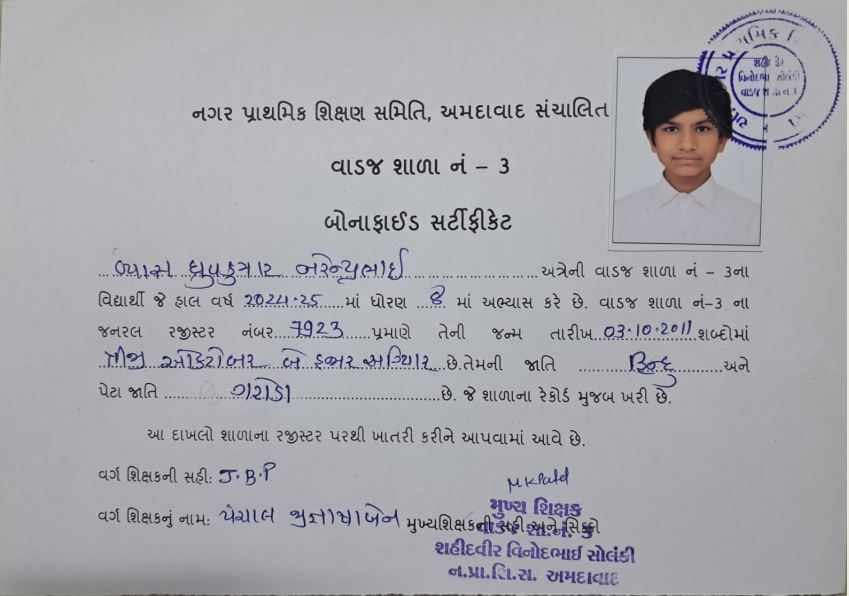 નગર પ્રાથમિક શિક્ષણ સમિતિ, અમદાવાદ સંચાલિત
વાડજ શાળા નં – 3
બોનાફાઈડ સર્ટીફીકેટ
વ્યાસ ધ્રુવકુમાર નરેન્દ્રભાઈ અત્રેની વાડજ શાળા નં – 3ના
વિદ્યાર્થી જે હાલ વર્ષ 2024-25 માં ધોરણ 8 માં અભ્યાસ કરે છે. વાડજ શાળા નં-3 ના
જનરલ રજીસ્ટર નંબર 7923 પ્રમાણે તેની જન્મ તારીખ 03-10-2011 શબ્દોમાં
ત્રીજી ઓક્ટોબર બે હજાર અગિયાર છે.તેમની જાતિ હિન્દુ અને
પેટા જાતિ ગરોડા છે. જે શાળાના રેકોર્ડ મુજબ ખરી છે.
આ દાખલો શાળાના રજીસ્ટર પરથી ખાતરી કરીને આપવામાં આવે છે.
વર્ગ શિક્ષકની સહી: J.B.P
MKPatel
વર્ગ શિક્ષકનું નામ: પંચાલ જીજ્ઞાષાબેન મુખ્યશિક્ષકની સહી અને સિક્કો
મુખ્ય શિક્ષક
શહીદવીર વિનોદભાઈ સોલંકી
ન.પ્રા.શિ.સ. અમદાવાદ